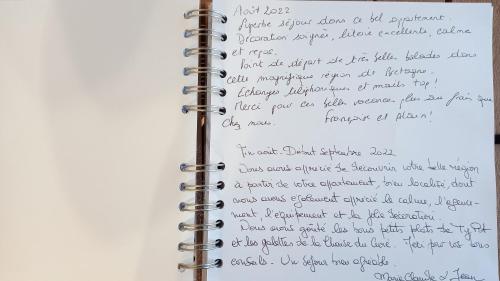 Août 2022
Superbe séjour dans ce bel appartement.
Décoration soignée, literie excellente, calme
et repos.
Point de départ de très belles balades dans
cette magnifique région de Bretagne.
Echanges téléphoniques et mails top!
Merci pour ces belles vacances plus au frais que
chez nous. Françoise et Alain!
Fin août - Début septembre 2022
Nous avons apprécié de découvrir votre belle région
à partir de votre appartement, bien localisé, dont
nous avons également apprécié le calme, l'agence-
ment, l'équipement et la jolie décoration.
Nous avons goûté les bons petits plats de Ty Pot
et les galettes de la Chaise du Curé. Merci pour vos bons
conseils. Un séjour bien agréable.
Marie Claude & Jean